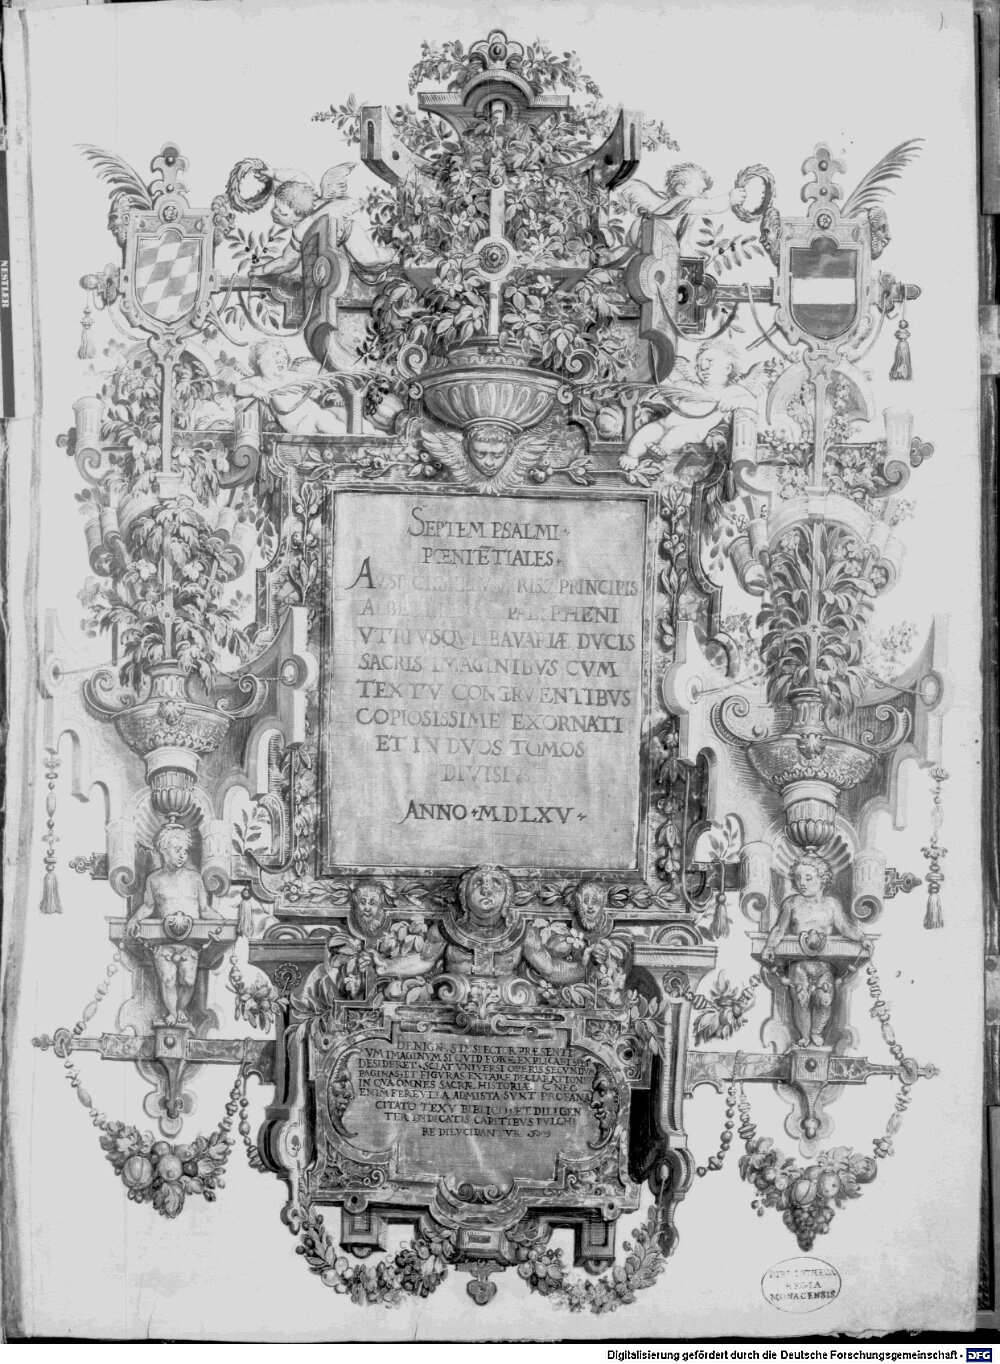 SEPTEM PSALMI
PŒNITE̅TIALES.
PRINCIPIS
VTRIVSQVE BAVARIÆ DVCIS
SACRIS IMAGINIBVS CVM
TEXTV CONGRVENTIBVS
COPIOSISSIME EXORNATI
ET IN DVOS TOMOS
DIVISI
ANNO·MDLXV·
VM IMAGINVM, SI QVID FORE EXPLICARI SIBI
DESIDERET, SCIAT VNIVERSI OPERIS SECVNDV
PAGINAS, ET FIGVRAS EXTARE DECLARATIONE
IN QVA OMNES SACRÆ HISTORIÆ
CITATO TEXV BIBLICO ET DILIGEN
TER INDICATIS CAPITIBVS PVLCH
RE DILVCIDANTVR
BIBLIOTHECA
REGIA
MONACENSIS
NESTLER
Digitalisierung gefördert durch die Deutsche Forschungsgemeinschaft - DFG